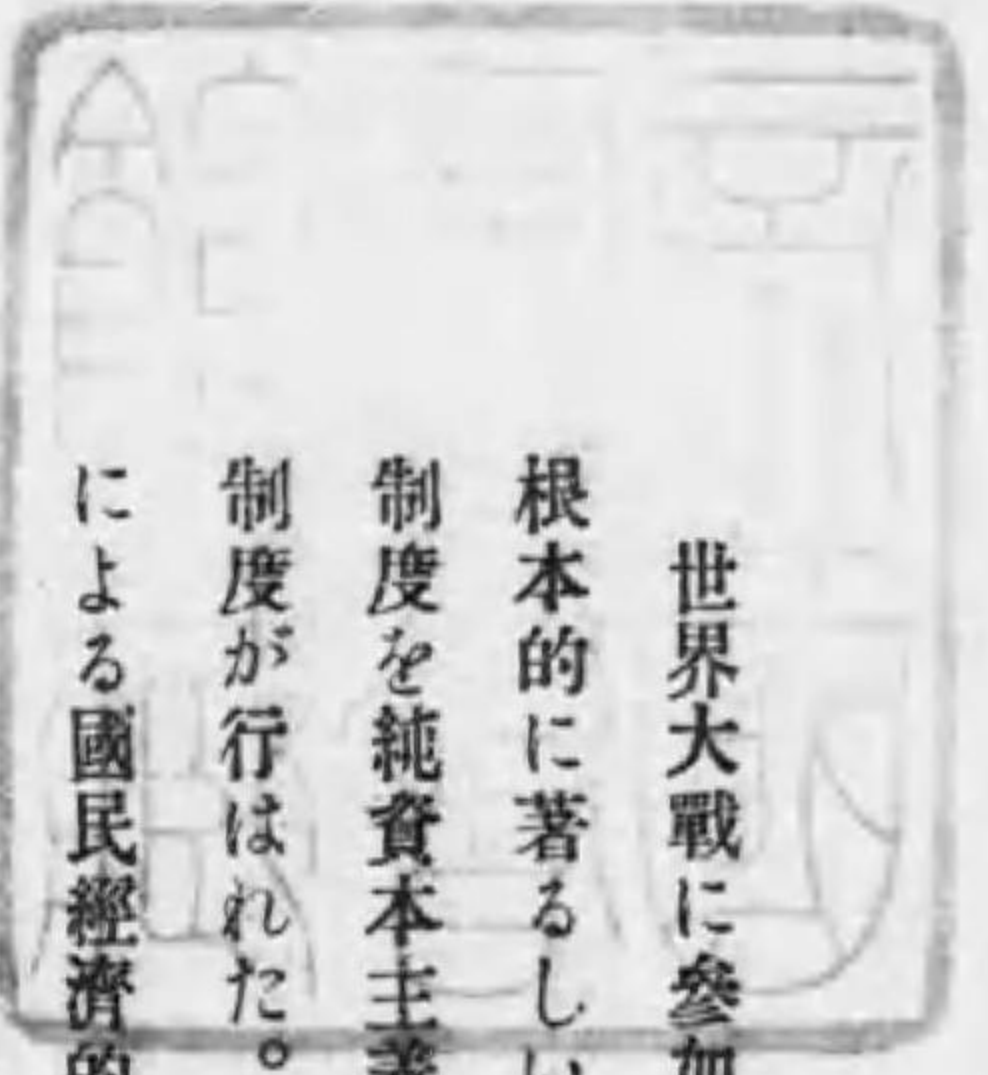 世界大戰に參加
根本的に著るしい
制度を純資本主義
制度が行はれた。
による國民經濟的